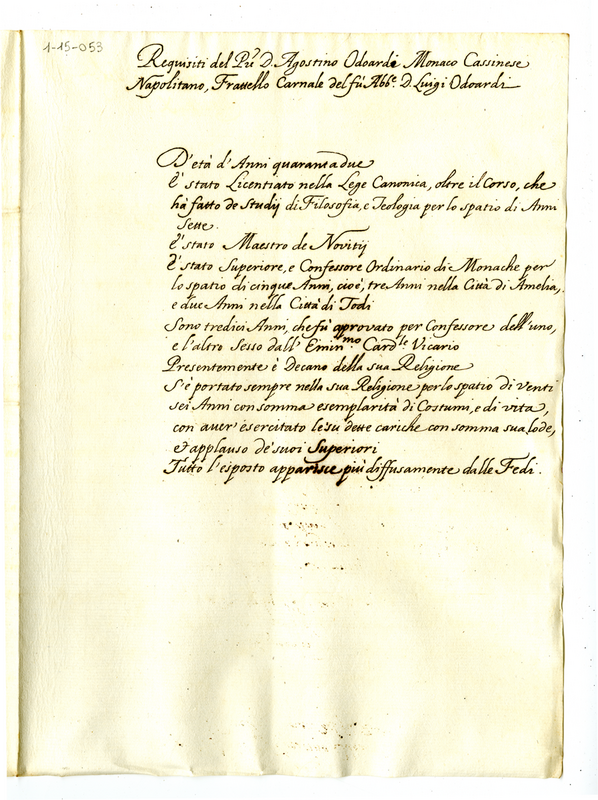 1-15-053
Requisiti del P.re D. Agostino Odoardi Monaco Cassinese
Napolitano, Fratello Carnale del fù Abb.e D. Luigi Odoardi
D'età d'Anni quarantadue
E' stato Licentiato nella Lege Canonica, oltre il Corso, che
hà fatto de Studij di Filosofia, e Teologia per lo spatio di Anni
Sette.
E' stato Maestro de Novitij
E' stato Superiore, e Confessore Ordinario di Monache per
lo spatio di cinque Anni, cioè, tre Anni nella Città di Amelia,
e due Anni nella Città di Todi
Sono tredici Anni, che fù aprovato per Confessore dell'uno,
e l'altro Sesso dall' Emin.mo Card.le Vicario
Presentemente è Decano della sua Religione
S'è portato sempre nella sua Religione per lo spatio di venti
sei Anni con somma esemplarità di Costumi, e di vita,
con aver' esercitato le su dette cariche con somma sua lode,
et applauso de' suoi Superiori
Tutto l'esposto apparisce più diffusamente dalle Fedi.